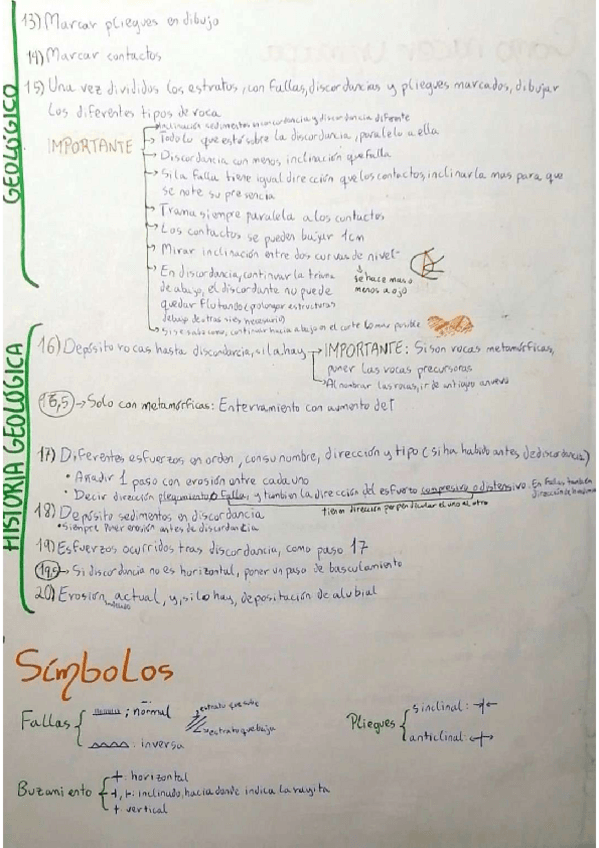 13) Marcar pliegues en dibujo
14) Marcar contactos
15) Una vez divididos los estratos, con fallas, discordancias y pliegues marcados, dibujar
los diferentes tipos de roca
GEOLÓGICO
IMPORTANTE
Inclinación sedimentos en concordancia y discordancia diferente
Todo lo que está sobre la discordancia, paralelo a ella
Discordancia con menos inclinación que falla
Si la falla tiene igual dirección que los contactos, inclinarla mas para que
se note su presencia
Trama siempre paralela a los contactos
Los contactos se pueden bajar 1cm
Mirar inclinación entre dos curvas de nivel
se hace mas o
menos a ojo
En discordancia, continuar la trama
de abajo, el discordante no puede
quedar flotando (prolongar estructuras
debajo de otras si es necesario)
Si se sabe como, continuar hacia abajo en el corte lo mas posible
HISTORIA GEOLÓGICA
16) Depósito rocas hasta discordancia, si la hay → IMPORTANTE: Si son rocas metamórficas,
poner las rocas precursoras
Al nombrar las rocas, ir de antiguo a nuevo
16,5 → Solo con metamórficas: Enterramiento con aumento de T
17) Diferentes esfuerzos en orden, con su nombre, dirección y tipo (si ha habido antes de discordancia)
• Añadir 1 paso con erosión entre cada uno
• Decir dirección plegamiento o falla, y tambien la dirección del esfuerzo compresivo o distensivo. En fallas tambien
tienen dirección perpendicular el uno al otro
18) Depósito sedimentos en discordancia
• siempre poner erosión antes de discordancia
19) Esfuerzos ocurridos tras discordancia, como paso 17
19,5 → Si discordancia no es horizontal, poner un paso de basculamiento
20) Erosión actual, y, si lo hay, depositación de alubial
Símbolos
Fallas
; normal
estrato que sube
estrato que baja
: inversa
Pliegues
sinclinal:
anticlinal:
Buzamiento
: horizontal
: inclinado, hacia donde indica la rayita
: vertical